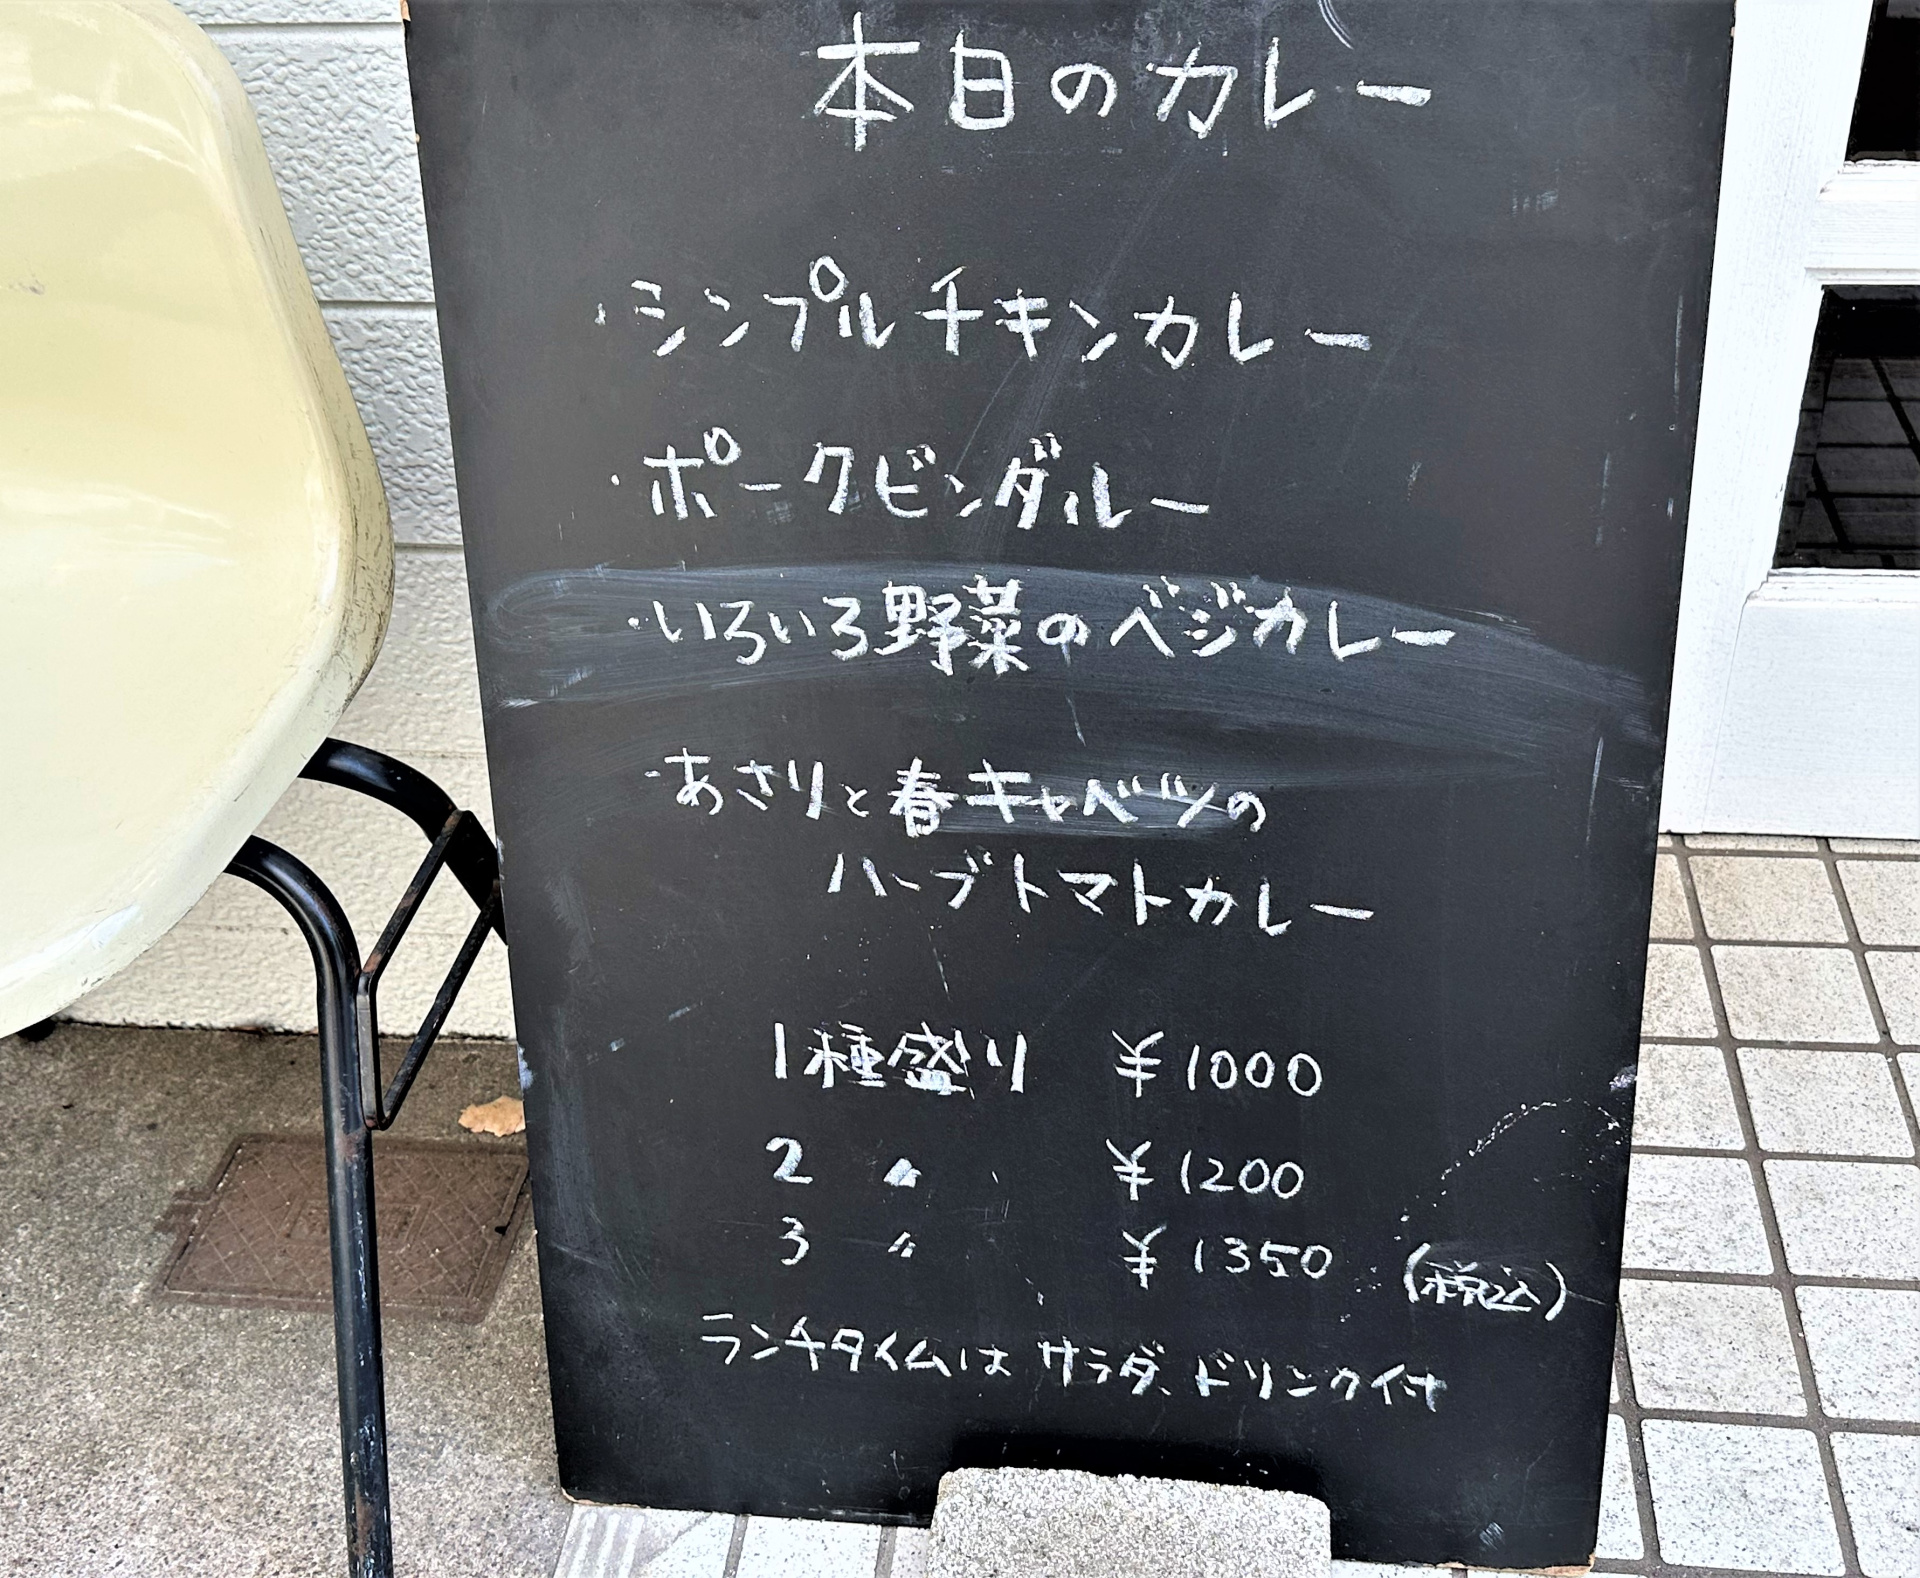 本日のカレー
・シンプルチキンカレー
・ポークビンダルー
・いろいろ野菜のベジカレー
・あさりと春キャベツの
ハーブトマトカレー
1種盛り ¥1000
2 〃 ¥1200
3 〃 ¥1350 (税込)
ランチタイムは サラダ、ドリンク付